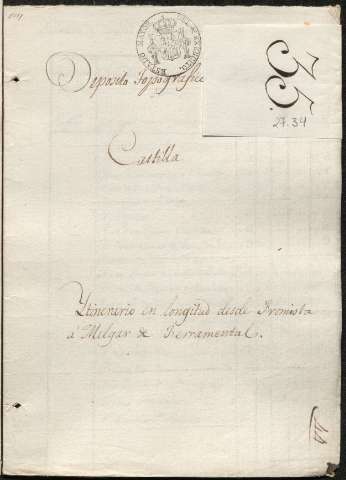 Deposito Topografico
35.
27.34
Castilla
Ytinerario en longitud desde Fromista
a Melgar de Ferramental.